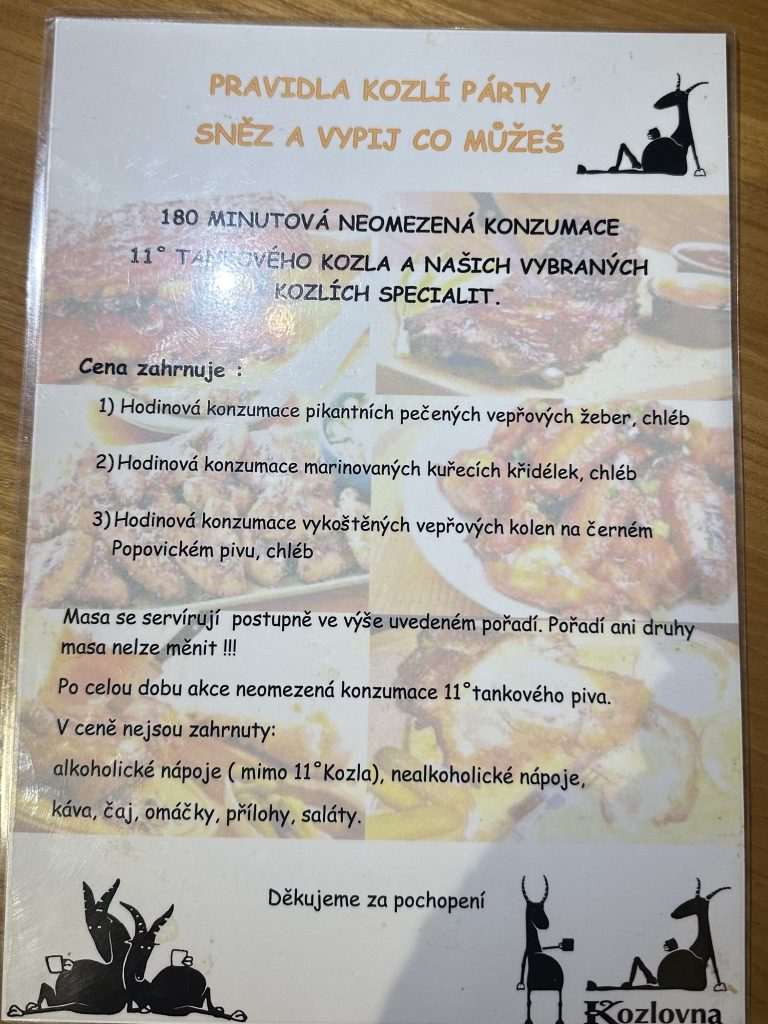 PRAVIDLA KOZLÍ PÁRTY
SNĚZ A VYPIJ CO MŮŽEŠ
180 MINUTOVÁ NEOMEZENÁ KONZUMACE
11° TANKOVÉHO KOZLA A NAŠICH VYBRANÝCH
KOZLÍCH SPECIALIT.
Cena zahrnuje :
1) Hodinová konzumace pikantních pečených vepřových žeber, chléb
2) Hodinová konzumace marinovaných kuřecích křidélek, chléb
3) Hodinová konzumace vykoštěných vepřových kolen na černém
Popovickém pivu, chléb
Masa se servírují postupně ve výše uvedeném pořadí. Pořadí ani druhy
masa nelze měnit !!!
Po celou dobu akce neomezená konzumace 11°tankového piva.
V ceně nejsou zahrnuty:
alkoholické nápoje ( mimo 11°Kozla), nealkoholické nápoje,
káva, čaj, omáčky, přílohy, saláty.
Děkujeme za pochopení
Kozlovna